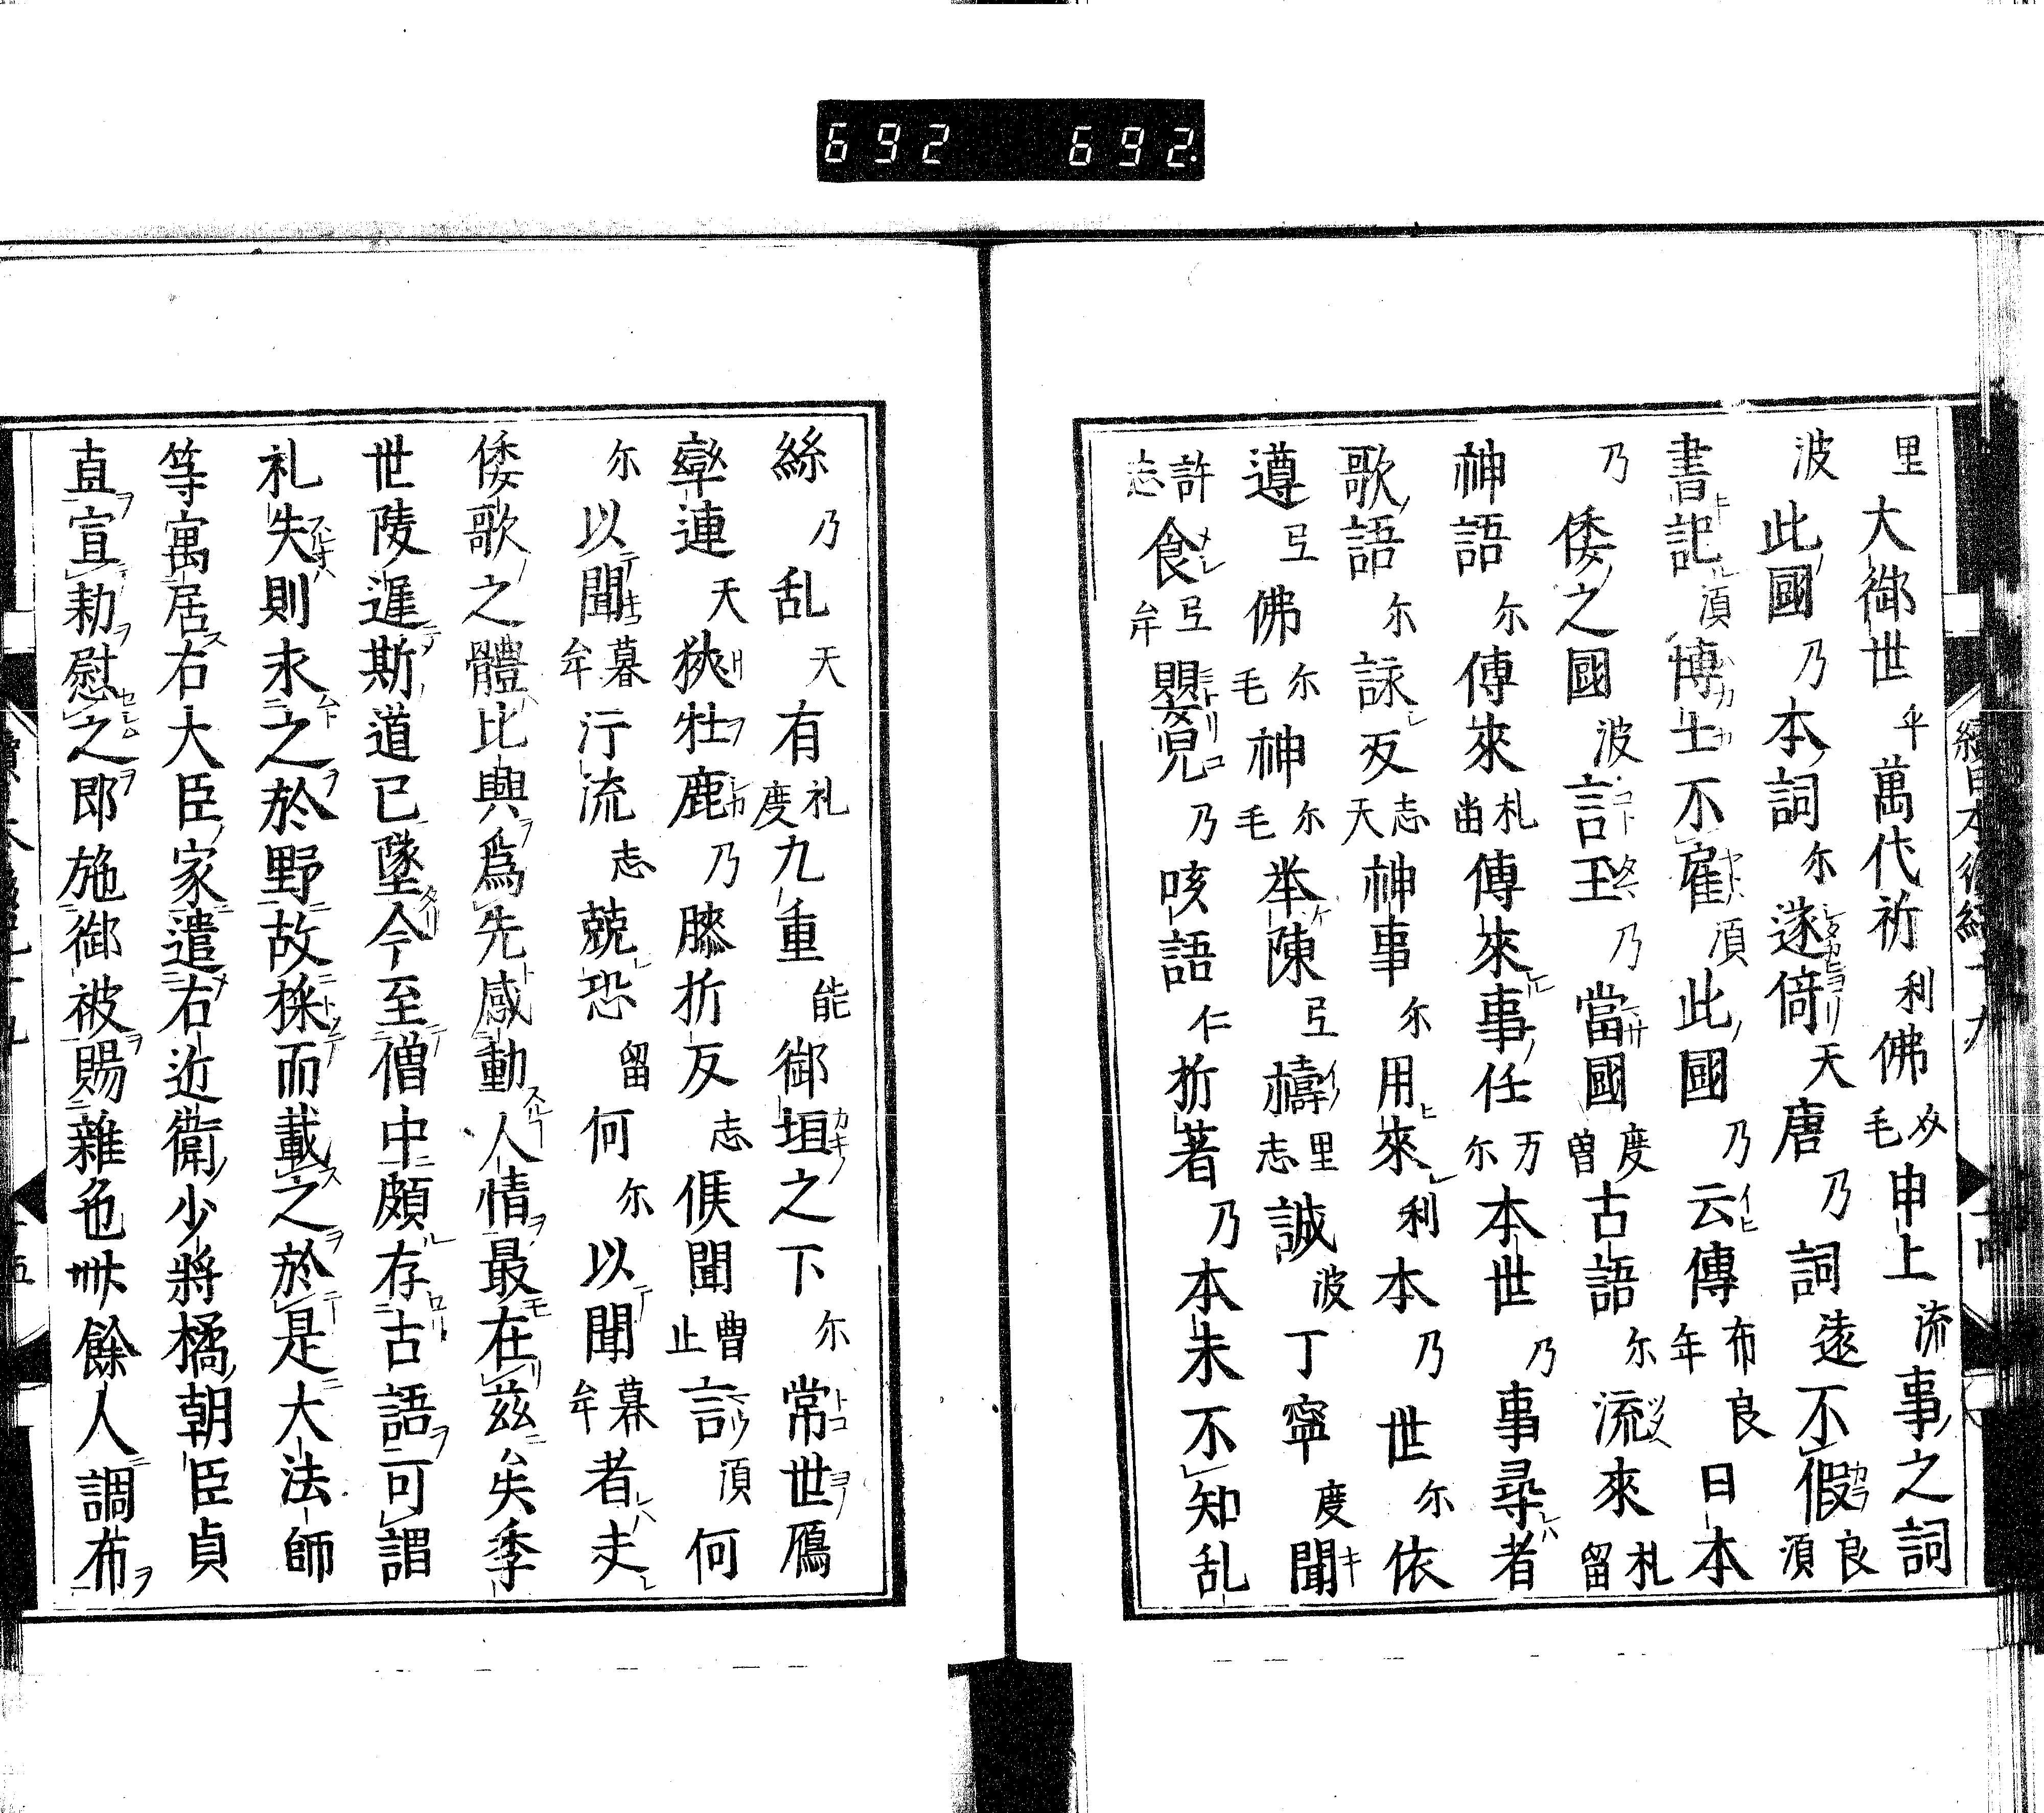 692 692.
里大御世乎萬代祈利佛尓毛申上流事之詞
波此國乃本詞尓逐倚天唐乃詞遠不假良須
書記須博士不雇須此國乃云傳布良年日本
乃倭之國波言玉乃當國度曽古語尓流來礼留
神語尓傳來礼留傳來事任万尓本世乃事尋者
歌語尓詠反志天神事尓用來利本乃世尓依
遵弖佛尓毛神尓毛挙陳弖禱里志誠波丁寧度聞
許志食弖牟嬰兒乃咳語仁折著乃本末不知乱
絲乃乱天有礼度九重能御垣之下尓常世鴈
率連天狹牡鹿乃膝折反志候聞曹止言須何
尓以聞暮牟行流志兢恐留何尓以聞暮牟者夫
倭歌之體比興爲先感動人情最在茲矣季
世陵遲斯道已墜今至僧中頗存古語可謂
礼失則求之於野故採而載之於是大法師
等寓居右大臣家遣右近衛少將橘朝臣貞
直宣勅慰之即施御被賜雜色卌餘人調布